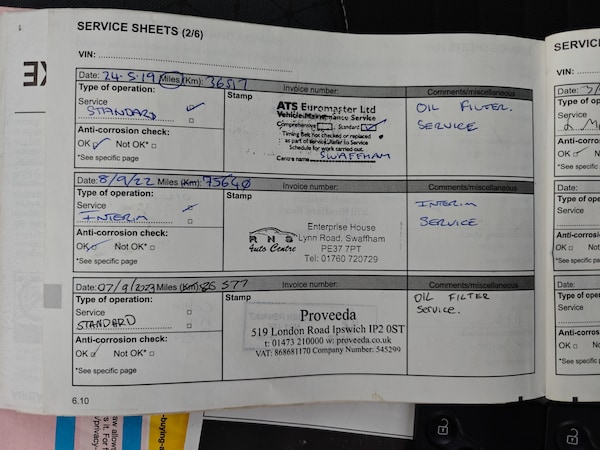 SERVICE SHEETS (2/6)
VIN:
Date: 24-5-19 Miles (Km): 36517 Invoice number: Comments/miscellaneous
Type of operation:
Service
STANDARD
Anti-corrosion check:
OK Not OK*
*See specific page
Stamp
ATS Euromaster Ltd
Vehicle Maintenance Service
Comprehensive Standard
Timing Belt not checked or replaced
as part of service. Refer to Service
Schedule for work carried out.
Centre name SWAFFHAM
OIL FILTER.
SERVICE
Date: 8/9/22 Miles (Km): 75640 Invoice number: Comments/miscellaneous
Type of operation:
Service
INTERIM
Anti-corrosion check:
OK Not OK*
*See specific page
Stamp
RNS
Auto Centre
Enterprise House
Lynn Road, Swaffham
PE37 7PT
Tel: 01760 720729
INTERIM
SERVICE
Date: 07/9/2023 Miles (Km): 86 577 Invoice number: Comments/miscellaneous
Type of operation:
Service
STANDARD
Anti-corrosion check:
OK Not OK*
*See specific page
Stamp
Proveeda
519 London Road Ipswich IP2 0ST
t: 01473 210000 w: proveeda.co.uk
VAT: 868681170 Company Number: 545299
OIL FILTER
SERVICE.
6.10
SERVIC
VIN:
Date:
Type of
Service
Anti-corros
OK
*See specific
Date:
Type of o
Service
Anti-corro
OK
*See specific
Date:
Type of o
Service
Anti-corro
OK
*See specific